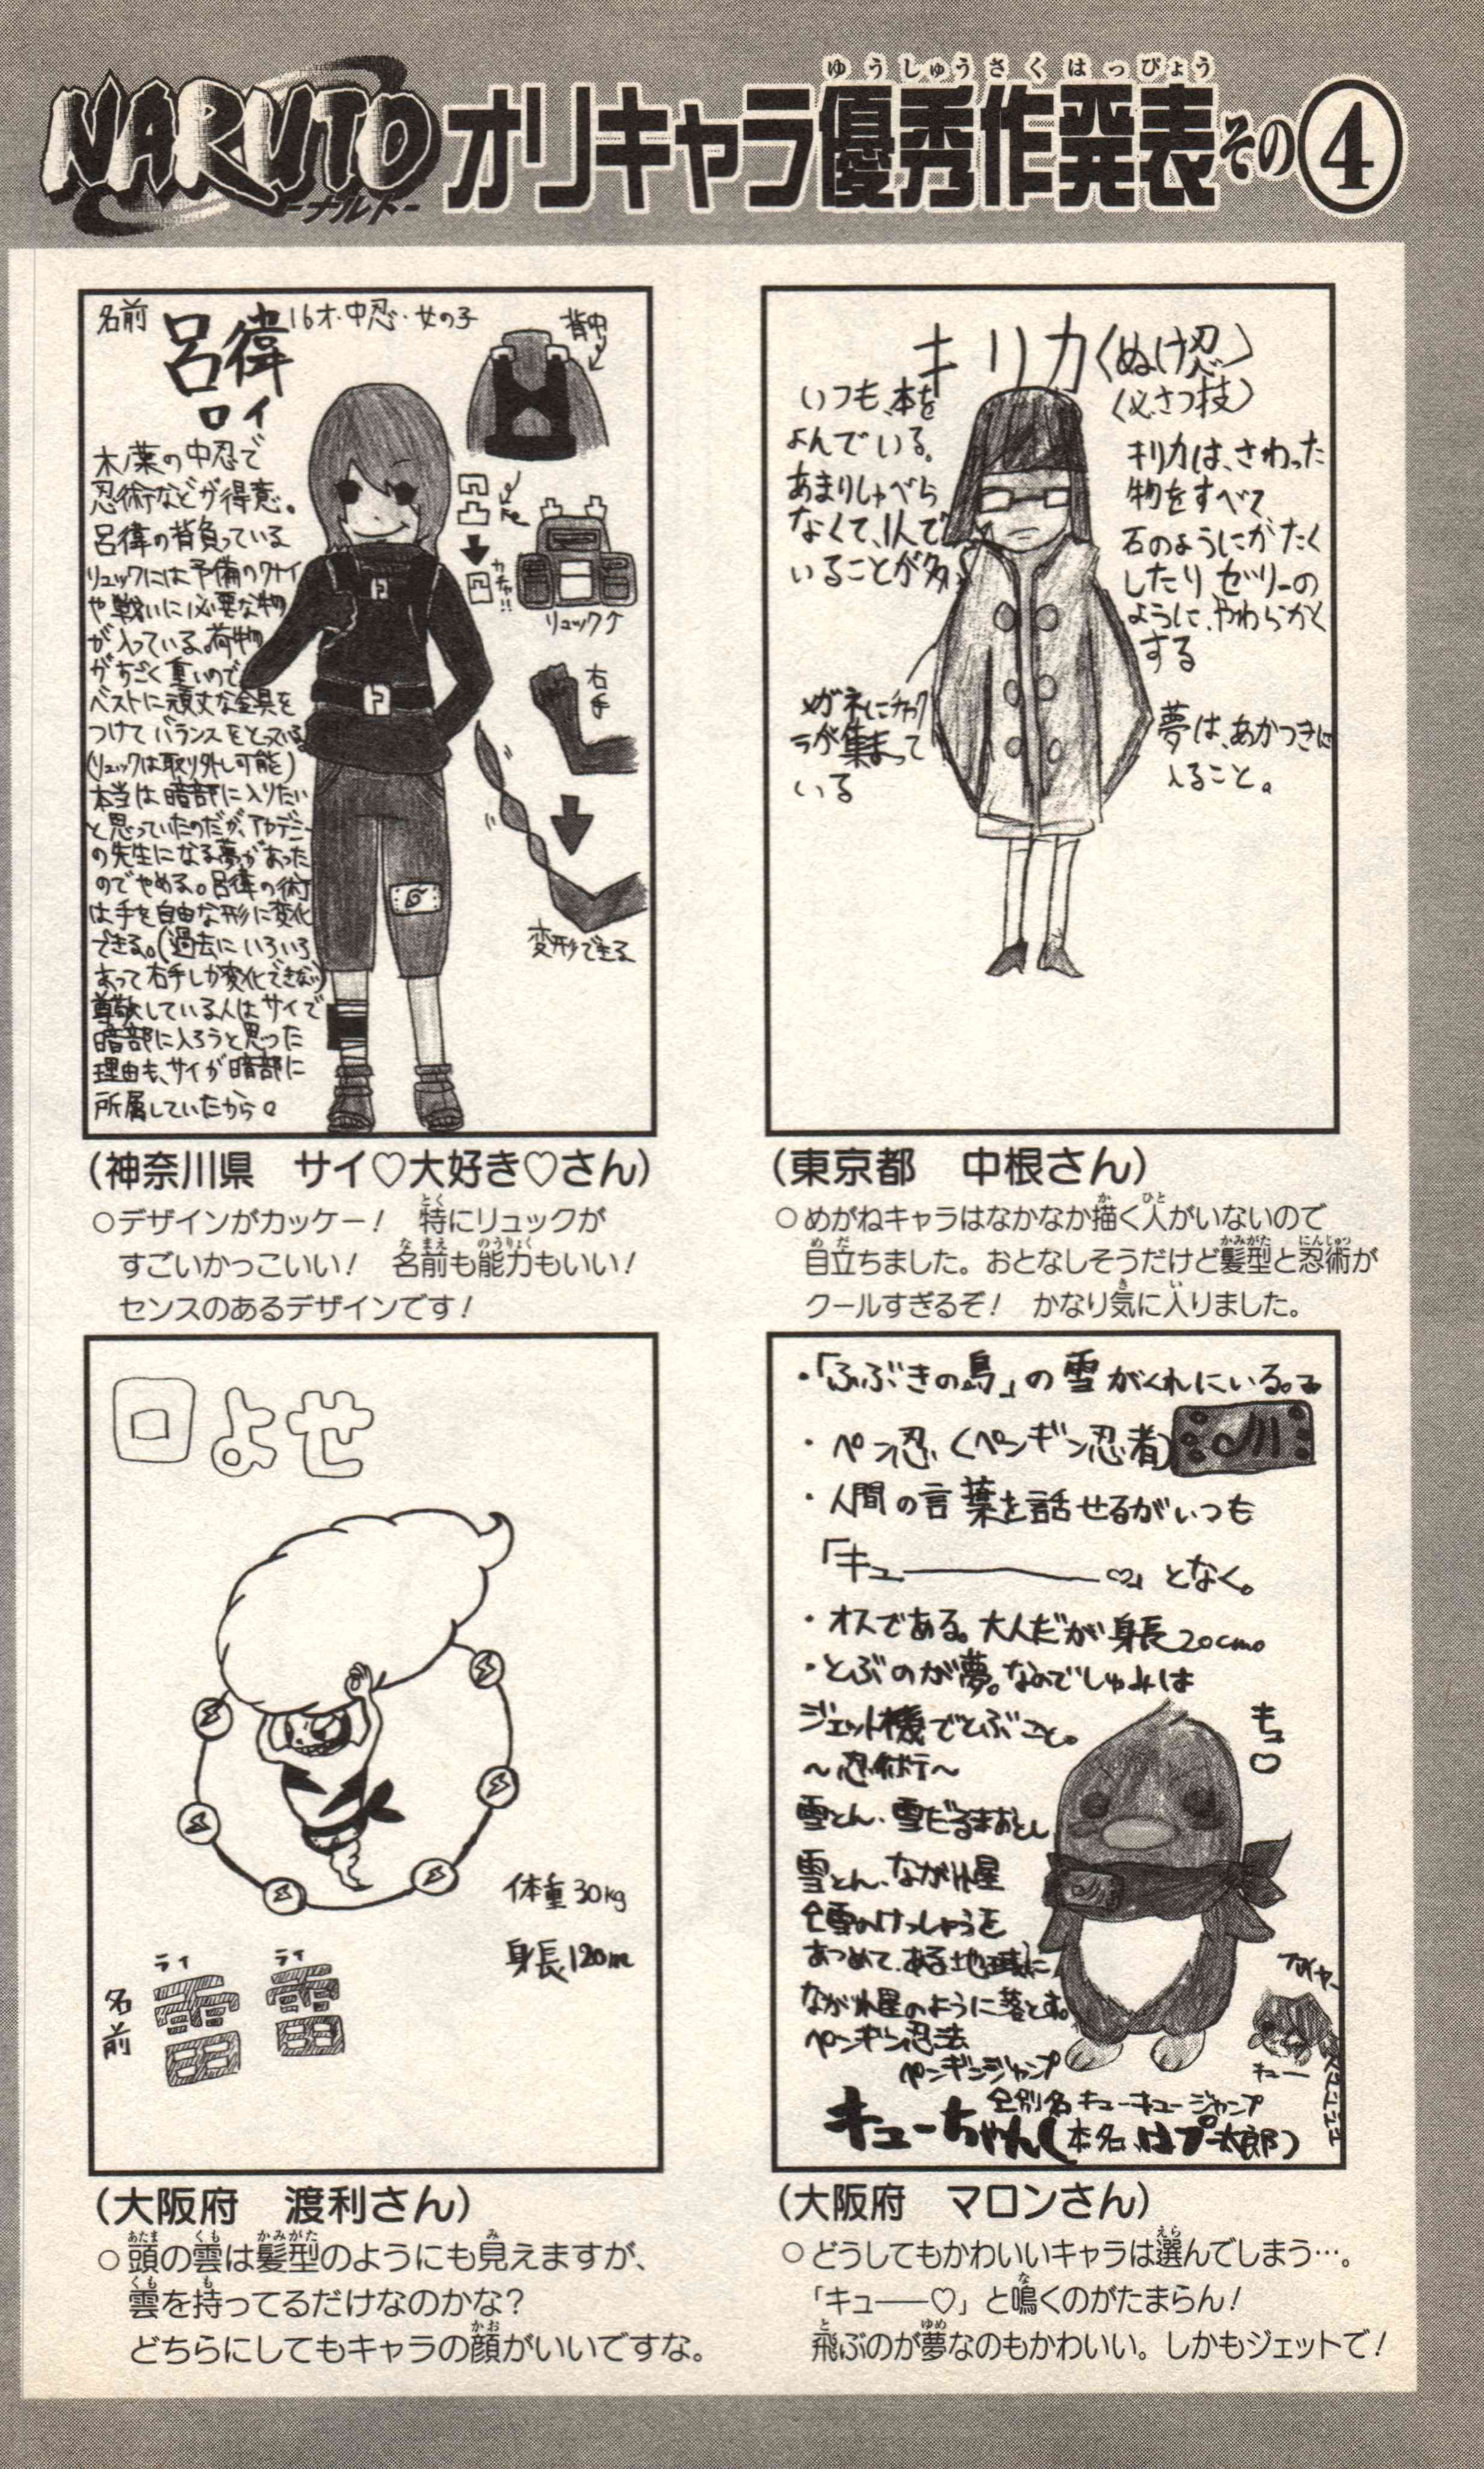 NARUTO
-ナルト-
オリキャラ優秀作発表その④
ゆうしゅうさくはっぴょう
名前 呂偉 16才・中忍・女の子
ロイ
背中
木ノ葉の中忍で
忍術などが得意。
呂偉の背負っている
リュックには予備のクナイ
や戦いに必要な物
が入っている。荷物
がすごく重いので
ベストに頑丈な金具を
つけてバランスをとっている
(リュックは取り外し可能)
本当は暗部に入りたい
と思っていたのだが、アカデミー
の先生になる夢があった
のでやめる。呂偉の術
は手を自由な形に変化
できる。(過去にいろいろ
あって右手しか変化できない)
尊敬している人はサイで
暗部に入ろうと思った
理由も、サイが暗部に
所属していたから。
カチャ!!
リュック↑
右手
変形できる
(神奈川県 サイ♡大好き♡さん)
○デザインがカッケー! 特にリュックが
すごいかっこいい! 名前も能力もいい!
センスのあるデザインです!
キリカ(ぬけ忍)
いつも、本を
よんでいる。
あまりしゃべら
なくて、1人で
いることが多い
メガネにチャク
ラが集まって
いる
(必さつ技)
キリカは、さわった
物をすべて
石のようにかたく
したり ゼリーの
ように、やわらかく
する
夢は、あかつきに
入ること。
(東京都 中根さん)
○めがねキャラはなかなか描く人がいないので
目立ちました。おとなしそうだけど髪型と忍術が
クールすぎるぞ! かなり気に入りました。
口よせ
体重30kg
身長120cm
名前
ライ ライ
雷 雷
(大阪府 渡利さん)
○頭の雲は髪型のようにも見えますが、
雲を持ってるだけなのかな?
どちらにしてもキャラの顔がいいですな。
・「ふぶきの島」の雪がくれにいる。
・ペン忍(ペンギン忍者)
・人間の言葉を話せるがいつも
「キュー――♡」となく。
・オスである。大人だが身長20cm。
・とぶのが夢。なのでしゅみは
ジェット機でとぶこと。
～忍術～
雪とん・雪だるまおとし
雪とん・ながれ星
雪のけっしょうを
あつめて、ある地球に
ながれ星のように落とす。
ペンギン忍法
ペンギンジャンプ
別名キューキュージャンプ
キュー♡
キュー
キューちゃん(本名はプー太郎)
(大阪府 マロンさん)
○どうしてもかわいいキャラは選んでしまう…。
「キュー――♡」と鳴くのがたまらん!
飛ぶのが夢なのもかわいい。しかもジェットで!